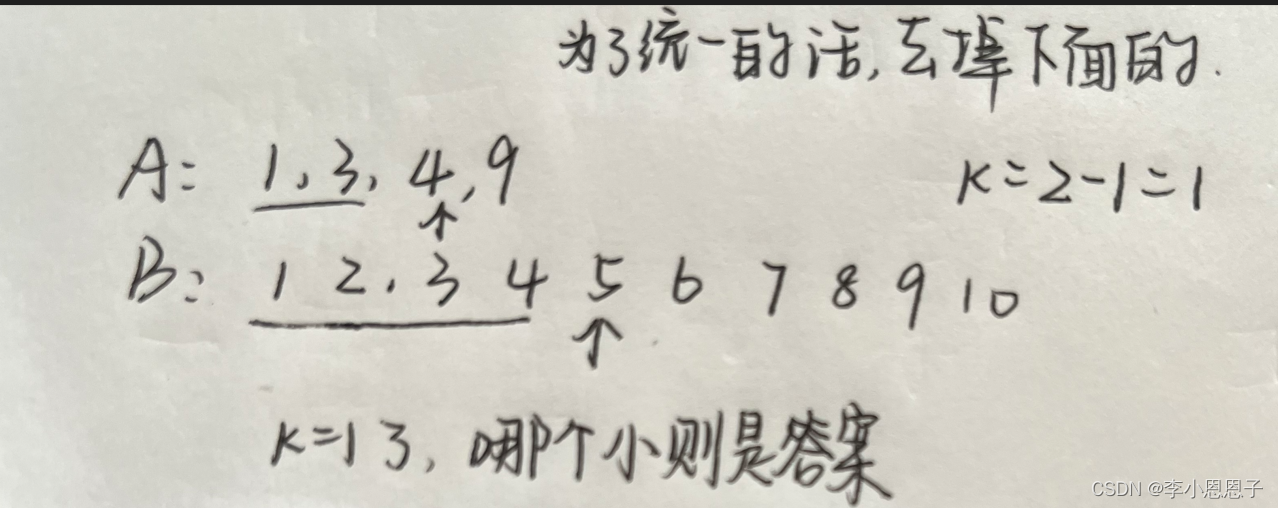 为了统一的话,去掉下面的.
A: 1,3,4,9
K=2-1=1
↑
B: 1 2.3 4 5 6 7 8 9 10
↑
K=1了,哪个小则是答案
CSDN @李小恩恩子